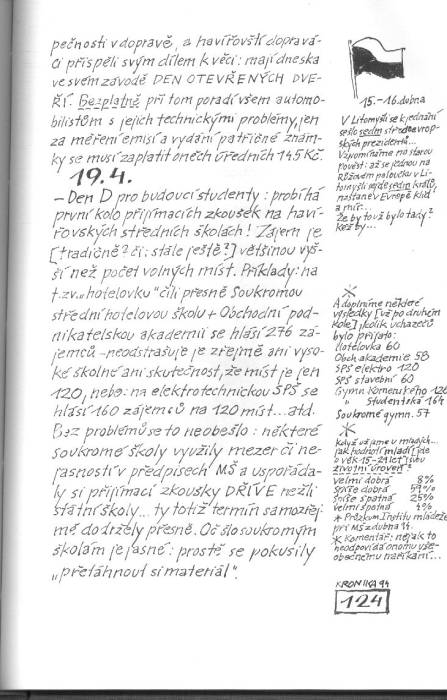 pečnosti v dopravě, a havířovští dopravá-
ci přispěli svým dílem k věci: mají dneska
ve svém závodě DEN OTEVŘENÝCH DVE-
ŘÍ. Bezplatně při tom poradí všem automo-
bilistům s jejich technickými problémy, jen
za měření emisí a vydání patřičné znám-
ky se musí zaplatit oněch úředních 145 Kč.
19.4.
– Den D pro budoucí studenty: probíhá
první kolo přijímacích zkoušek na haví-
řovských středních školách! Zájem je
[tradičně? či: stále ještě?] většinou vyš-
ší než počet volných míst. Příklady: na
t.zv. „hotelovku" čili přesně Soukromou
střední hotelovou školu + Obchodní pod-
nikatelskou akademii se hlásí 276 zá-
jemců – neodstrašuje je zřejmě ani vyso-
ké školné ani skutečnost, že míst je jen
120, nebo: na elektrotechnickou SPŠ se
hlásí 160 zájemců na 120 míst... atd.
Bez problémů se to neobešlo: některé
soukromé školy využily mezer či ne-
jasností v předpisech MŠ a uspořáda-
ly si přijímací zkoušky DŘÍVE nežli
státní školy... ty totiž termín samozřej-
mě dodržely přesně. Oč šlo soukromým
školám je jasné: prostě se pokusily
„přetáhnout si materiál".
15.–16. dubna
V Litomyšli se k jednání
sešlo sedm středoevrop-
ských prezidentů...
Vzpomínáme na starou
pověst: až se jednou na
Růžovém paloučku v Li-
tomyšli sejde sedm králů,
nastane v Evropě klid
a mír...
Že by to už bylo tady?
Kéž by...
*
A doplníme některé
výsledky [už po druhém
kole], kolik uchazečů
bylo přijato:
Hotelovka 60
Obch. akademie 58
SPŠ elektro 120
SPŠ stavební 60
Gymn. Komenského 126
" Studentská 164
Soukromé gymn. 57
*
Když už jsme u mladých...
jak hodnotí mladí lidé
ve věku 15–21 let svou
životní úroveň?
velmi dobrá 8%
spíše dobrá 59%
spíše špatná 25%
velmi špatná 4%
* Průzkum Institutu mládeže
při MŠ z dubna 94.
* Komentář: nějak to
neodpovídá onomu vše-
obecnému naříkání...
KRONIKA 94
124